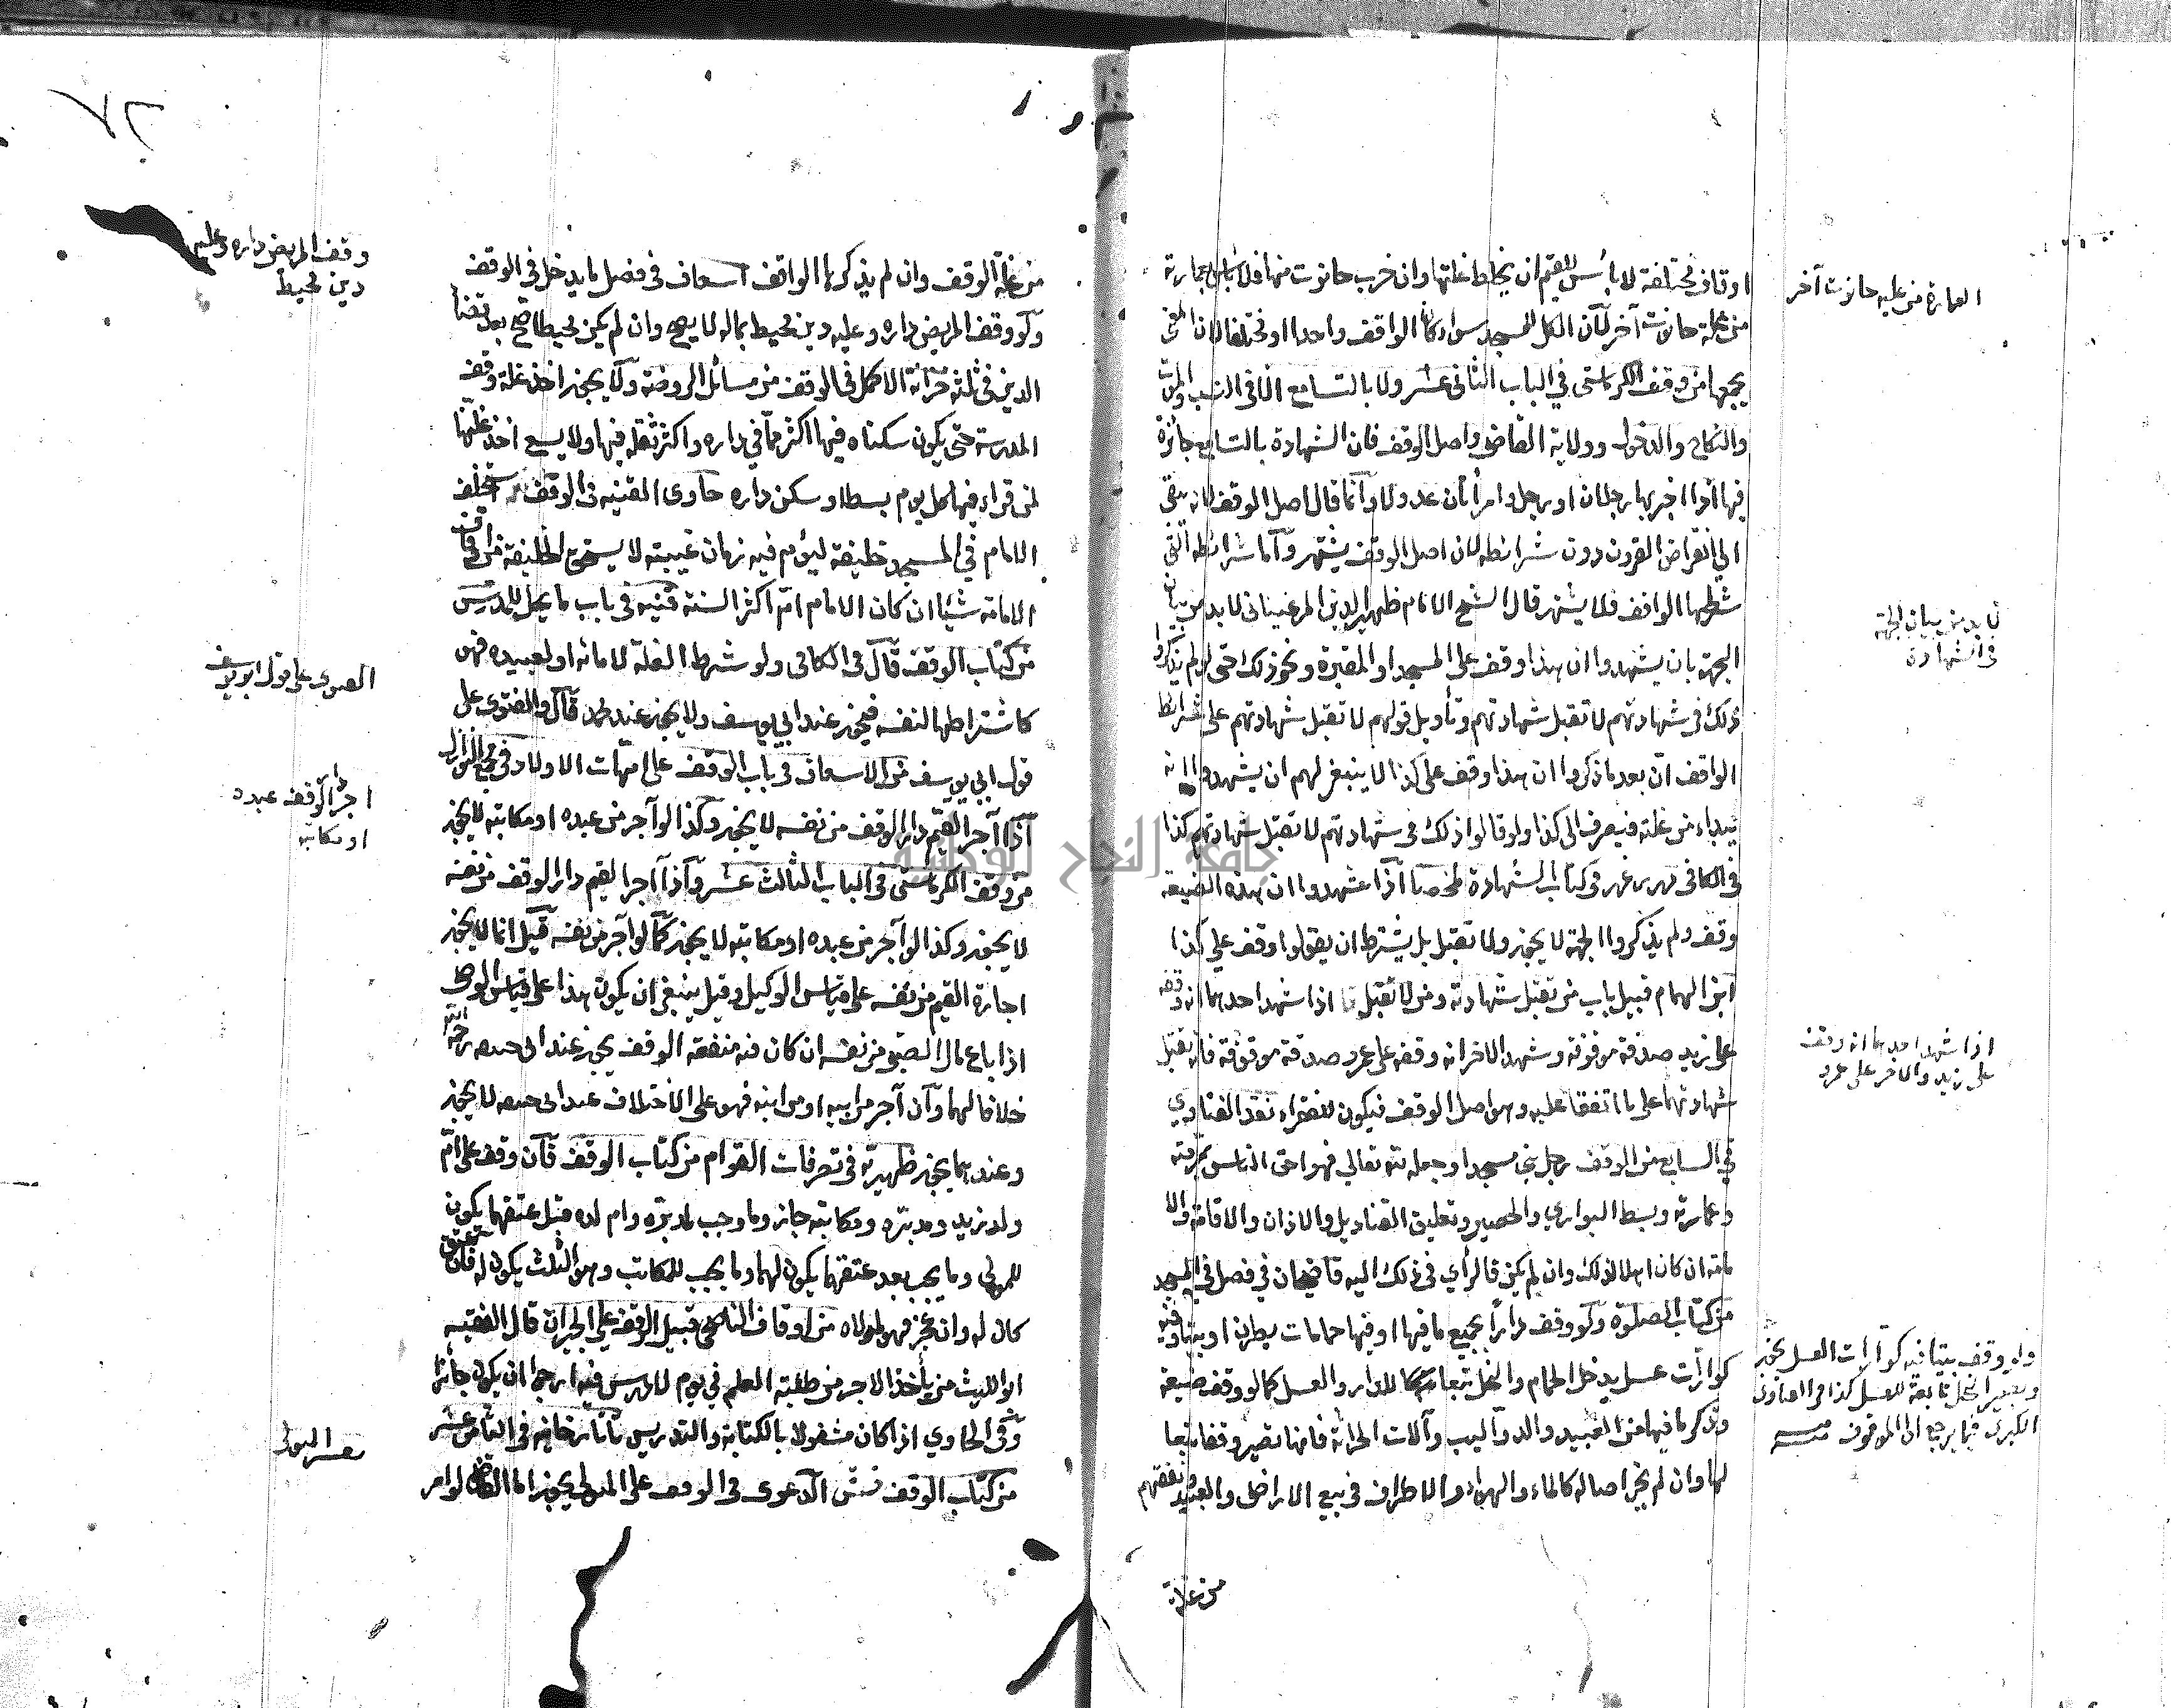 اوقاف مختلفة لا بأس للقيم ان يخلط غلتها وان خرب حانوت منها فلا بأس بعمارته
من غلة حانوت آخر لان الكل للمسجد سواء كان الواقف واحدا او مختلفا لان المعنى
يجمعها من وقف الكرماستى في الباب الثانى عشر ولا بالتسامع الا فى النسب والموت
والنكاح والدخول وولاية القاضى واصل الوقف فان الشهادة بالتسامع جائزة
فيها اذا اخبر بها رجلان او رجل وامرأتان عدول وانما قال اصل الوقف لانه يبقى
الى انقراض القرون دون شرائطه لان اصل الوقف يشتهر واما شرائطه التى
شرطها الواقف فلا يشتهر قال الشيخ الامام ظهير الدين المرغينانى لا بد من بيان
الجهة بان يشهدوا ان هذا وقف على المسجد او المقبرة ونحو ذلك حتى لو لم يذكروا
ذلك فى شهادتهم لا تقبل شهادتهم وتأويل قولهم لا تقبل شهادتهم على شرائط
الواقف ان بعد ما ذكروا ان هذا وقف على كذا لا ينبغى لهم ان يشهدوا انه
يبداء من غلته فيصرف الى كذا ولو قالوا ذلك فى شهادتهم لا تقبل شهادتهم كذا
فى الكافى فى كتاب الشهادة ملخصا اذا شهدوا ان هذه الضيعة
وقف ولم يذكروا الجهة لا يجوز ولا تقبل بل يشترط ان يقولوا وقف على كذا
ابن الهمام قبيل باب من تقبل شهادته ومن لا تقبل اذا شهد احدهما انه وقفه
على زيد صدقة موقوفة وشهد الاخر انه وقفه على عمرو صدقة موقوفة فانه تقبل
شهادتهما على ما اتفقا عليه وهو اصل الوقف فيكون للفقراء نقد الفتاوي
في السابع من الوقف رجل بنى مسجدا وجعله لله تعالى فهو احق الناس بمرمته
وعمارته وبسط البواري والحصير وتعليق القناديل والاذان والاقامة والا
مامة ان كان اهلا لذلك وان لم يكن فالرأي في ذلك اليه قاضيخان في فصل في المسجد
من كتاب الصلوة ولو وقف دارا بجميع ما فيها وفيها حمامات يطرن او بيتا وفيه
كوارات عسل يدخل الحمام والنحل تبعا للدار والعسل كما لو وقف ضيعة
وذكر ما فيها من العبيد والدواليب وآلات الحراثة فانها تصير وقفا تبعا
لها وان لم يجز اصالة كالماء والهواء والاطراف فى بيع الاراضى والعبيد ونفقتهم
من غلة
العمارة من غلة حانوت آخر
لا بد من بيان الجهة
فى الشهادة
اذا شهد احدهما انه وقف
على زيد والاخر على عمرو
ولو وقف بيتا فيه كوارات العسل يجوز
ويصير النحل تابعة للعسل كذا فى الفتاوى
الكبرى فيما يرجع الى الموقوف
٧٢
من غلة الوقف وان لم يذكرها الواقف اسعاف فى فصل ما يدخل فى الوقف
ولو وقف المريض داره وعليه دين محيط بماله لا يصح وان لم يكن محيطا صح بعد قضاء
الدين فى ثلثه خزانة الاكمل فى الوقف من مسائل الروضة ولا يجوز اخذ غلة وقف
المدرسة حتى يكون سكناه فيها اكثر مما في داره واكثر ثقله فيها ولا يسع اخذ غلتها
لمن قراء فيها كل يوم بسطا وسكن داره حاوى القنية فى الوقف استخلف
الامام في المسجد خليفة ليؤم فيه زمان غيبته لا يستحق الخليفة من اوقاف
الامامة شيئا ان كان الامام ام اكثر السنة قنيه فى باب ما يحل للمدرس
من كتاب الوقف قال فى الكافى ولو شرط الغلة لامائه او لعبيده فهو
كاشتراطها لنفسه فيجوز عند ابي يوسف ولا يجوز عند محمد قال والفتوى على
قول ابي يوسف من الاسعاف فى باب الوقف على امهات الاولاد وفى مجمع النوازل
اذا آجر القيم دار الوقف من نفسه لا يجوز وكذا لو آجر من عبده او مكاتبه لا يجوز
من وقف الكرماستى فى الباب الثالث عشر واذا آجر القيم دار الوقف من نفسه
لا يجوز وكذا لو آجر من عبده او مكاتبه لا يجوز كما لو آجر من نفسه قيل انما لا يجوز
اجارة القيم من نفسه على قياس الوكيل وقيل ينبغى ان يكون هذا على قياس الوصى
اذا باع مال الصبى من نفسه ان كان فيه منفعة الوقف يجوز عند ابى حنيفه رحمه الله
خلافا لهما وان آجر من ابيه او من ابنه فهو على الاختلاف عند ابى حنيفه لا يجوز
وعندهما يجوز ظهيريه فى تصرفات القوام من كتاب الوقف فان وقف على ام
ولد زيد ومدبره ومكاتبه جاز وما وجب لمدبره وام لده قبل عتقهما يكون
للمولى وما يجب بعد عتقهما يكون لهما وما يجب للمكاتب وهو الثلث يكون له فان عتق
كان له وان عجز فهو لمولاه من اوقاف الناصحى قبيل الوقف على الجيران قال الفقيه
ابو الليث من يأخذ الاجر من طلبة العلم في يوم لا درس فيه ارجو ان يكون جائزا
وفى الحاوي اذا كان مشغولا بالكتابة والتدريس تاتارخانيه فى الثامن عشر
من كتاب الوقف الدعوى فى الوقف على المتولى يجوز اما القاضى لو امر
وقف المريض داره وعليه
دين محيط
الفتوى على قول ابو يوسف
اجر الوقف عبده
او مكاتبه
جامعة النجاح الوطنية